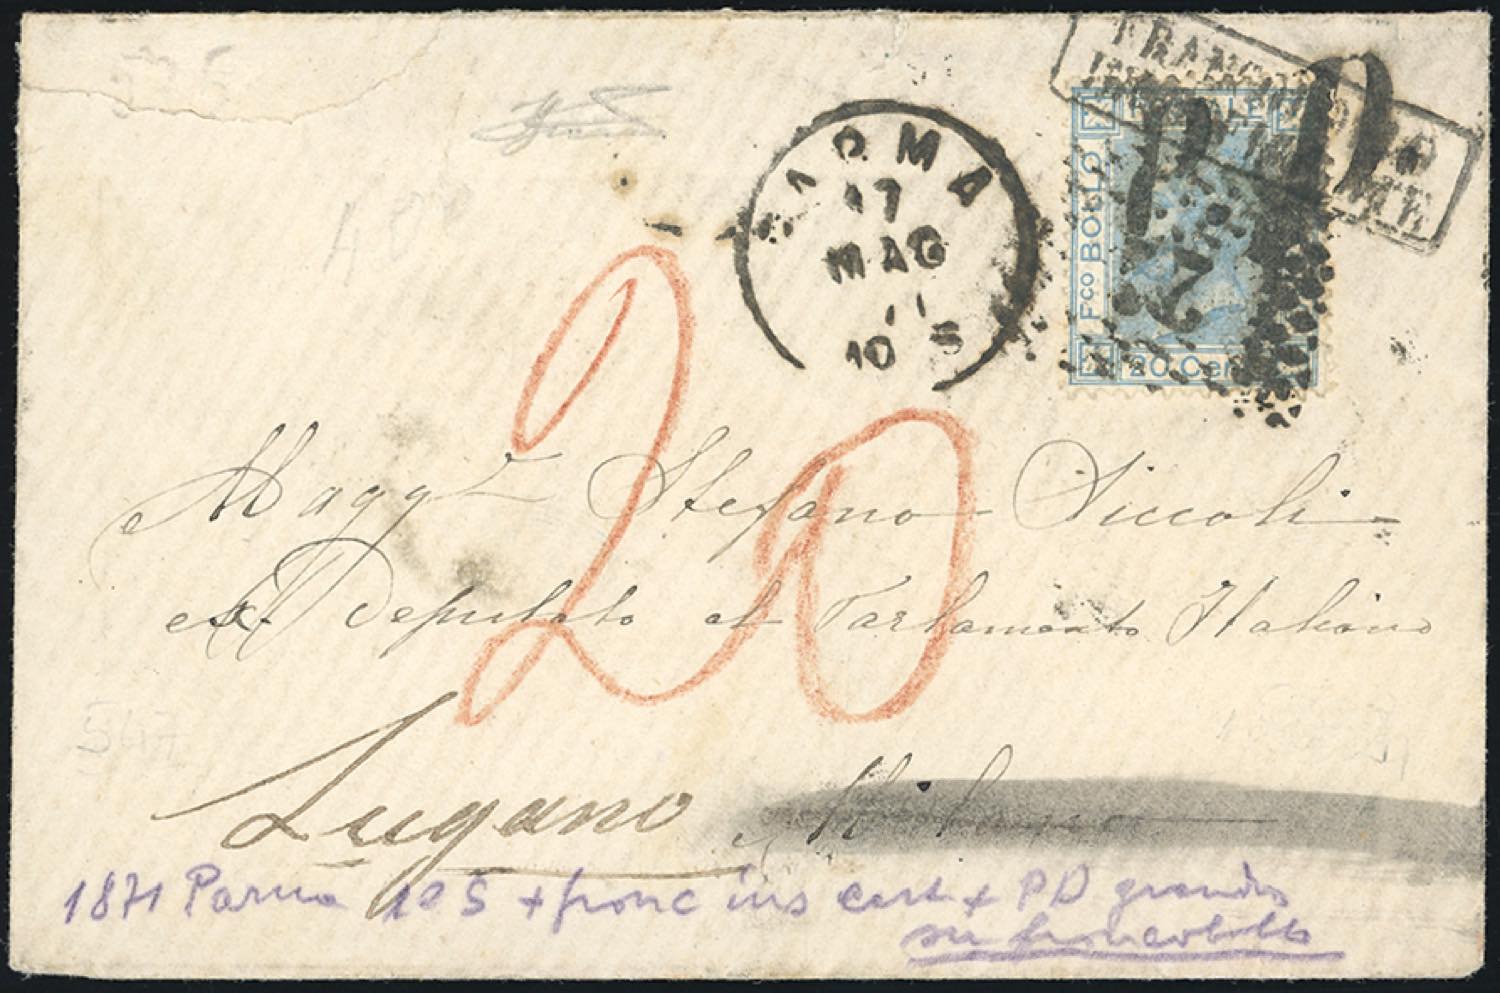 FRANCOBOLLO
INSUFFICIENTE
POSTALE
Fco BOLLO
20 Cent
PARMA
17
MAG
71
10 S
P D
20
Magg.re Stefano Siccoli
ex Deputato al Parlamento Italiano
Lugano Milano
547
1871 Parma 10 S + franc ins cart + PD grande
su francobollo